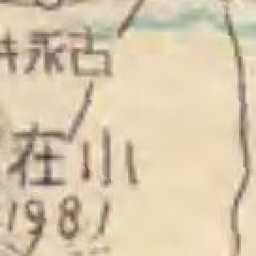 永古
在小
1981